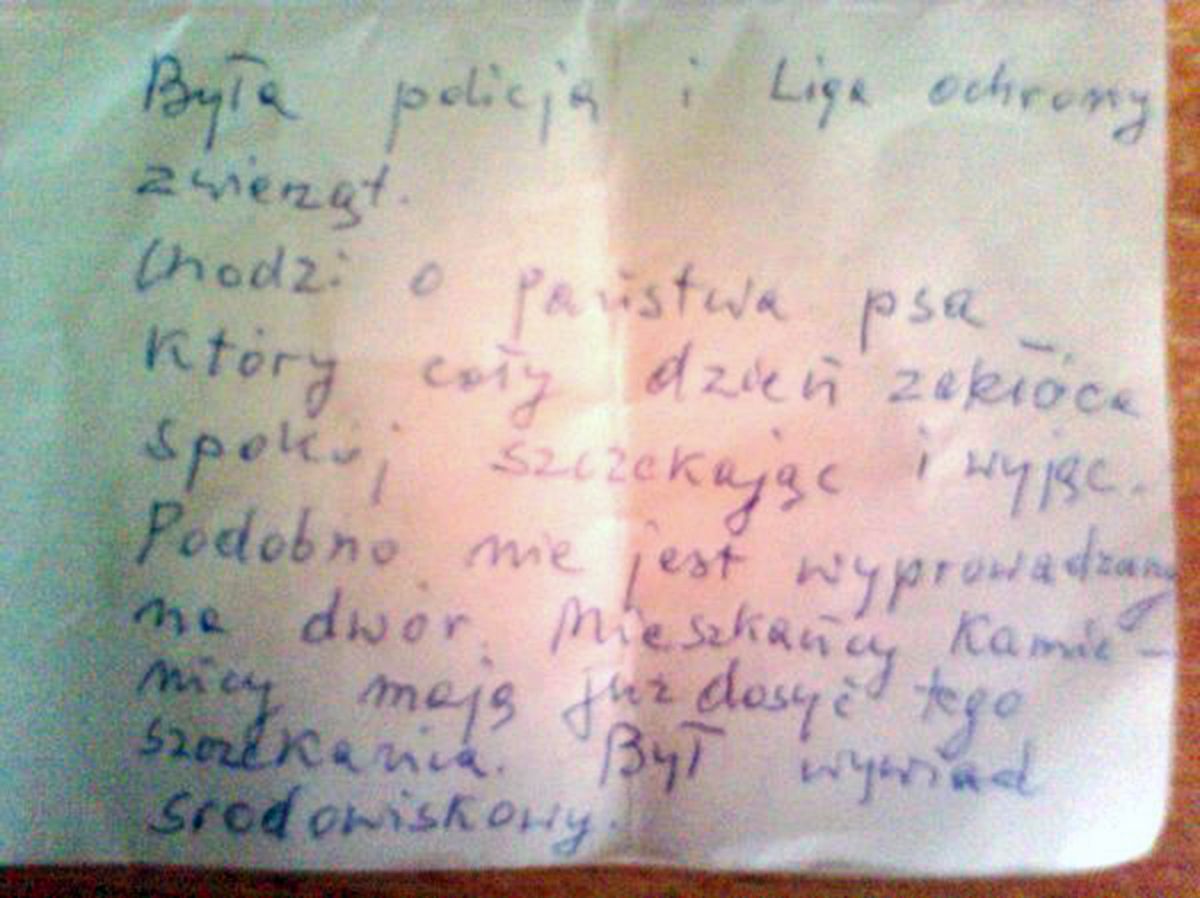 Była policja i Liga ochrony
zwierząt.
Chodzi o państwa psa
który cały dzień zakłóca
spokój szczekając i wyjąc.
Podobno nie jest wyprowadzany
na dwór. Mieszkańcy Kamie-
nicy mają już dosyć tego
szczekania. Był wywiad
srodowiskowy.